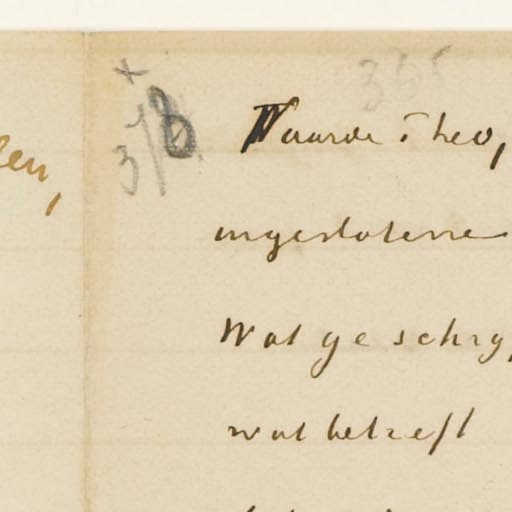 len,
378
365
Waarde Theo,
ingeslotene
Wat ge schryf
wat betreft